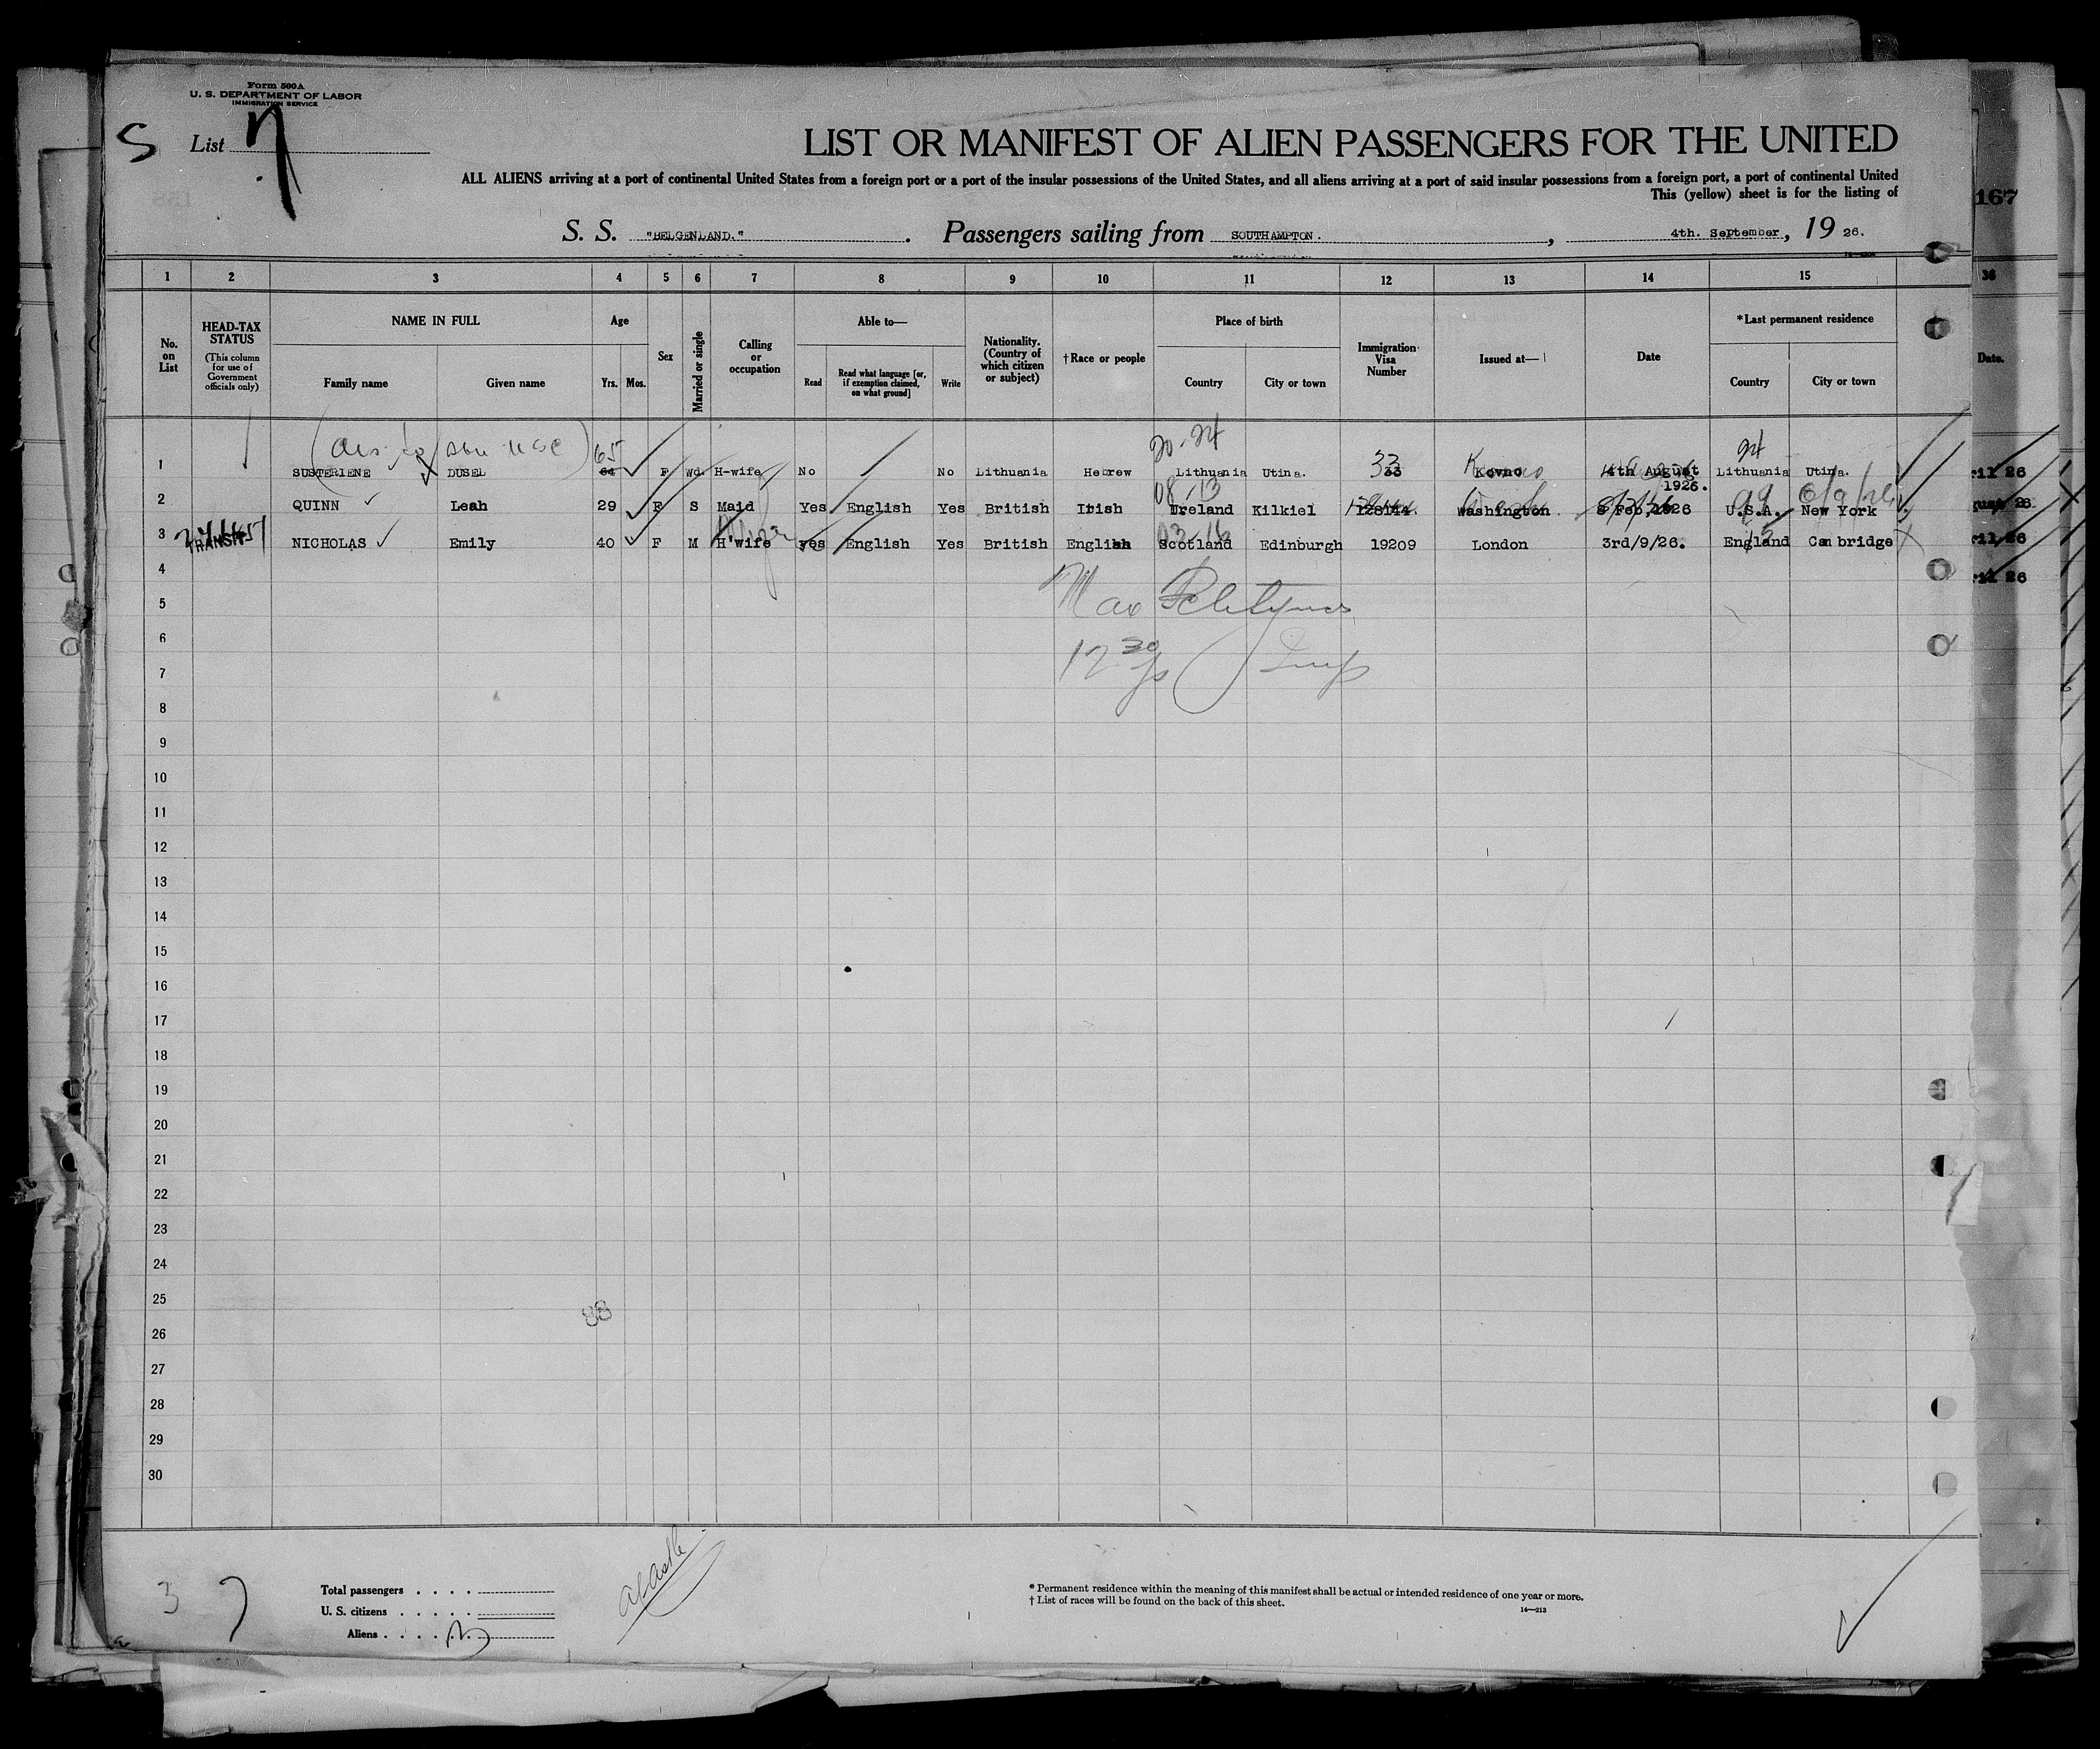 Form 500A
U. S. DEPARTMENT OF LABOR
IMMIGRATION SERVICE
S List 7
LIST OR MANIFEST OF ALIEN PASSENGERS FOR THE UNITED
ALL ALIENS arriving at a port of continental United States from a foreign port or a port of the insular possessions of the United States, and all aliens arriving at a port of said insular possessions from a foreign port, a port of continental United
This (yellow) sheet is for the listing of
167
S. S. "BELGENLAND." Passengers sailing from SOUTHAMPTON. , 4th. September, 19 26.
1 2 3 4 5 6 7 8 9 10 11 12 13 14 15 36
No. on List
HEAD-TAX STATUS
(This column for use of Government officials only)
NAME IN FULL
Family name Given name
Age
Yrs. Mos.
Sex
Married or single
Calling or occupation
Able to—
Read
Read what language [or, if exemption claimed, on what ground]
Write
Nationality. (Country of which citizen or subject)
†Race or people
Place of birth
Country City or town
Immigration Visa Number
Issued at—
Date
*Last permanent residence
Country City or town
Date.
65
1 SUSTERIENE DUSEL 64 F Wd. H-wife No No Lithuania Hebrew Lithuania Utina. 33 33 Kovno 4th August 1926. Lithuania Utina.
08-13
2 QUINN Leah 29 F S Maid Yes English Yes British Irish Ireland Kilkiel 128144. Washington 8 Feb, 1926 U.S.A. New York
3 TRANSIT NICHOLAS Emily 40 F M H'wife yes English Yes British English Scotland Edinburgh 19209 London 3rd/9/26. England Cambridge
4
5
6
7
8
9
10
11
12
13
14
15
16
17
18
19
20
21
22
23
24
25
88
26
27
28
29
30
3 7
Total passengers
U. S. citizens
Aliens 3
* Permanent residence within the meaning of this manifest shall be actual or intended residence of one year or more.
† List of races will be found on the back of this sheet.
14—213